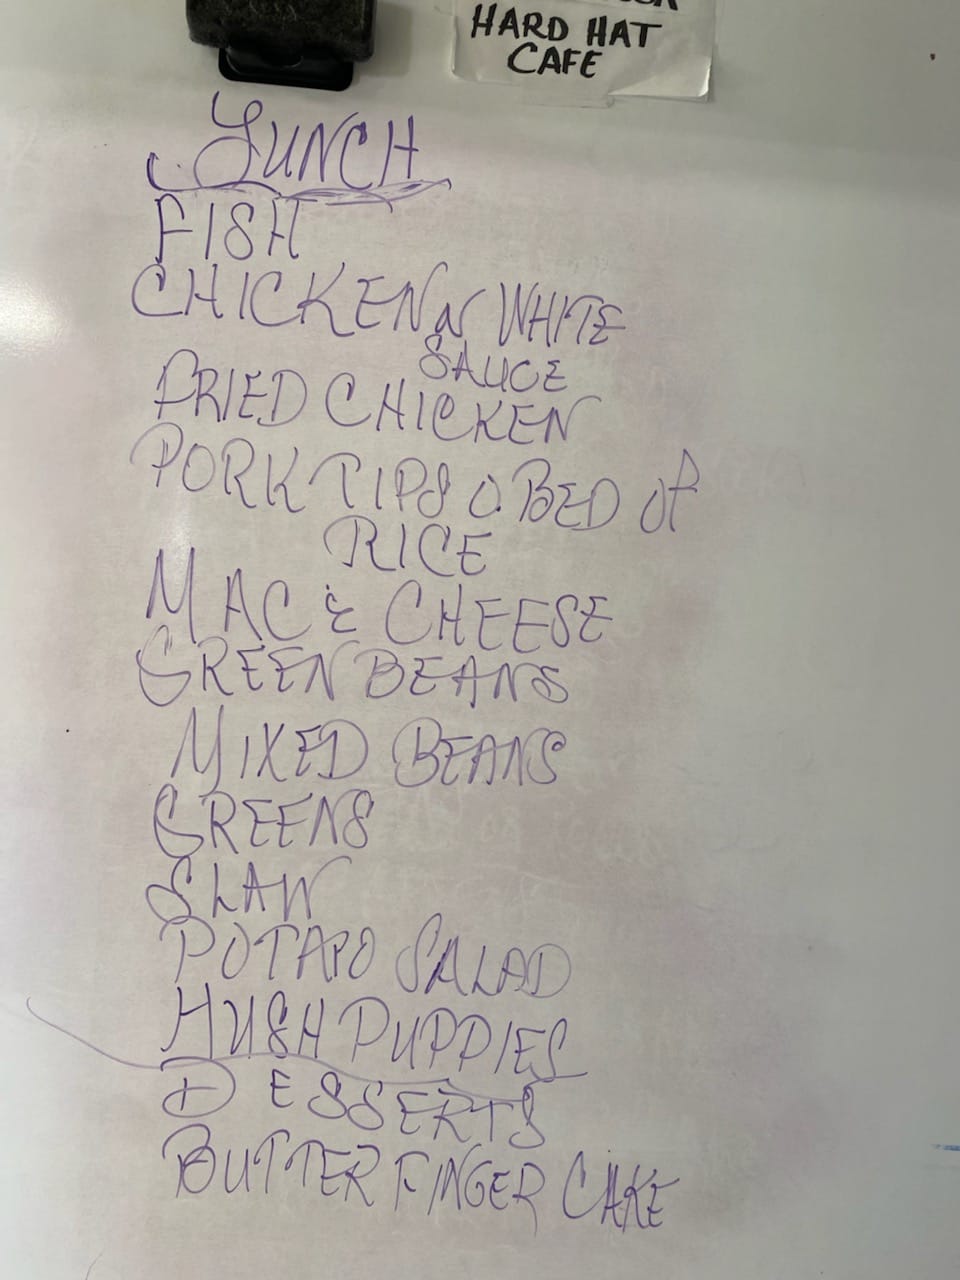 HARD HAT
CAFE
LUNCH
FISH
CHICKEN N WHITE
SAUCE
FRIED CHICKEN
PORK TIPS O. BED OF
RICE
MAC & CHEESE
GREEN BEANS
MIXED BEANS
GREENS
SLAW
POTATO SALAD
HUSH PUPPIES
DESSERTS
BUTTER FINGER CAKE